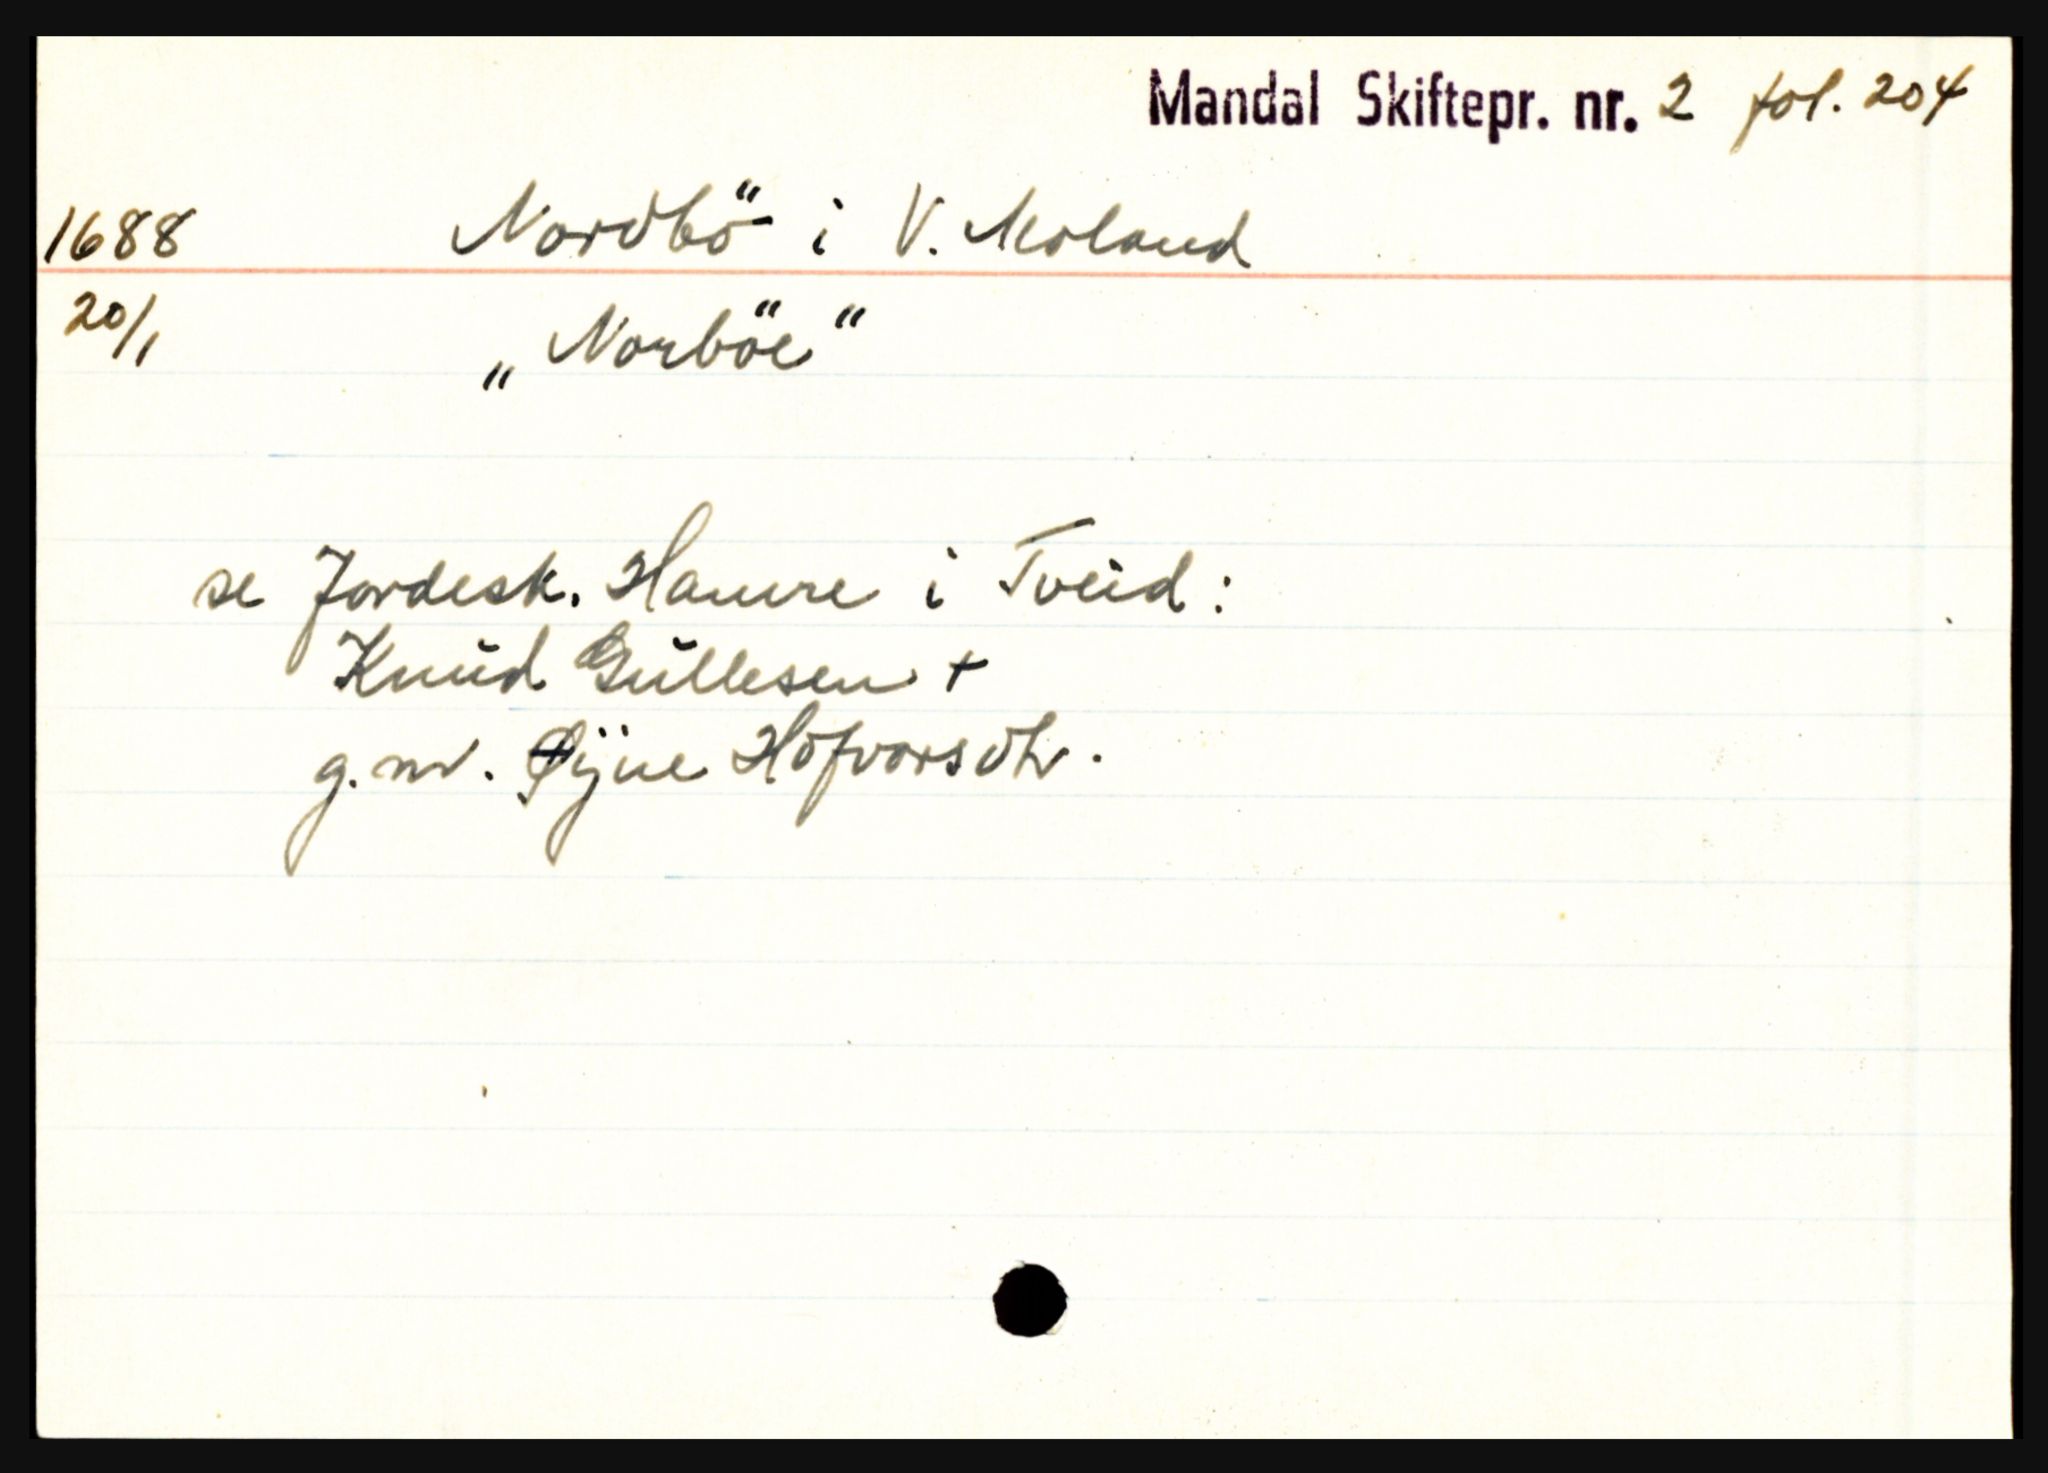 Mandal Skiftepr. nr. 2 fol. 204
1688 Nordbö i V. Moland
20/1 „Norböe"
se Jordesk. Hamre i Tveid:
Knud Gullesen +
g.m. Øÿne Hofvorsdtr.